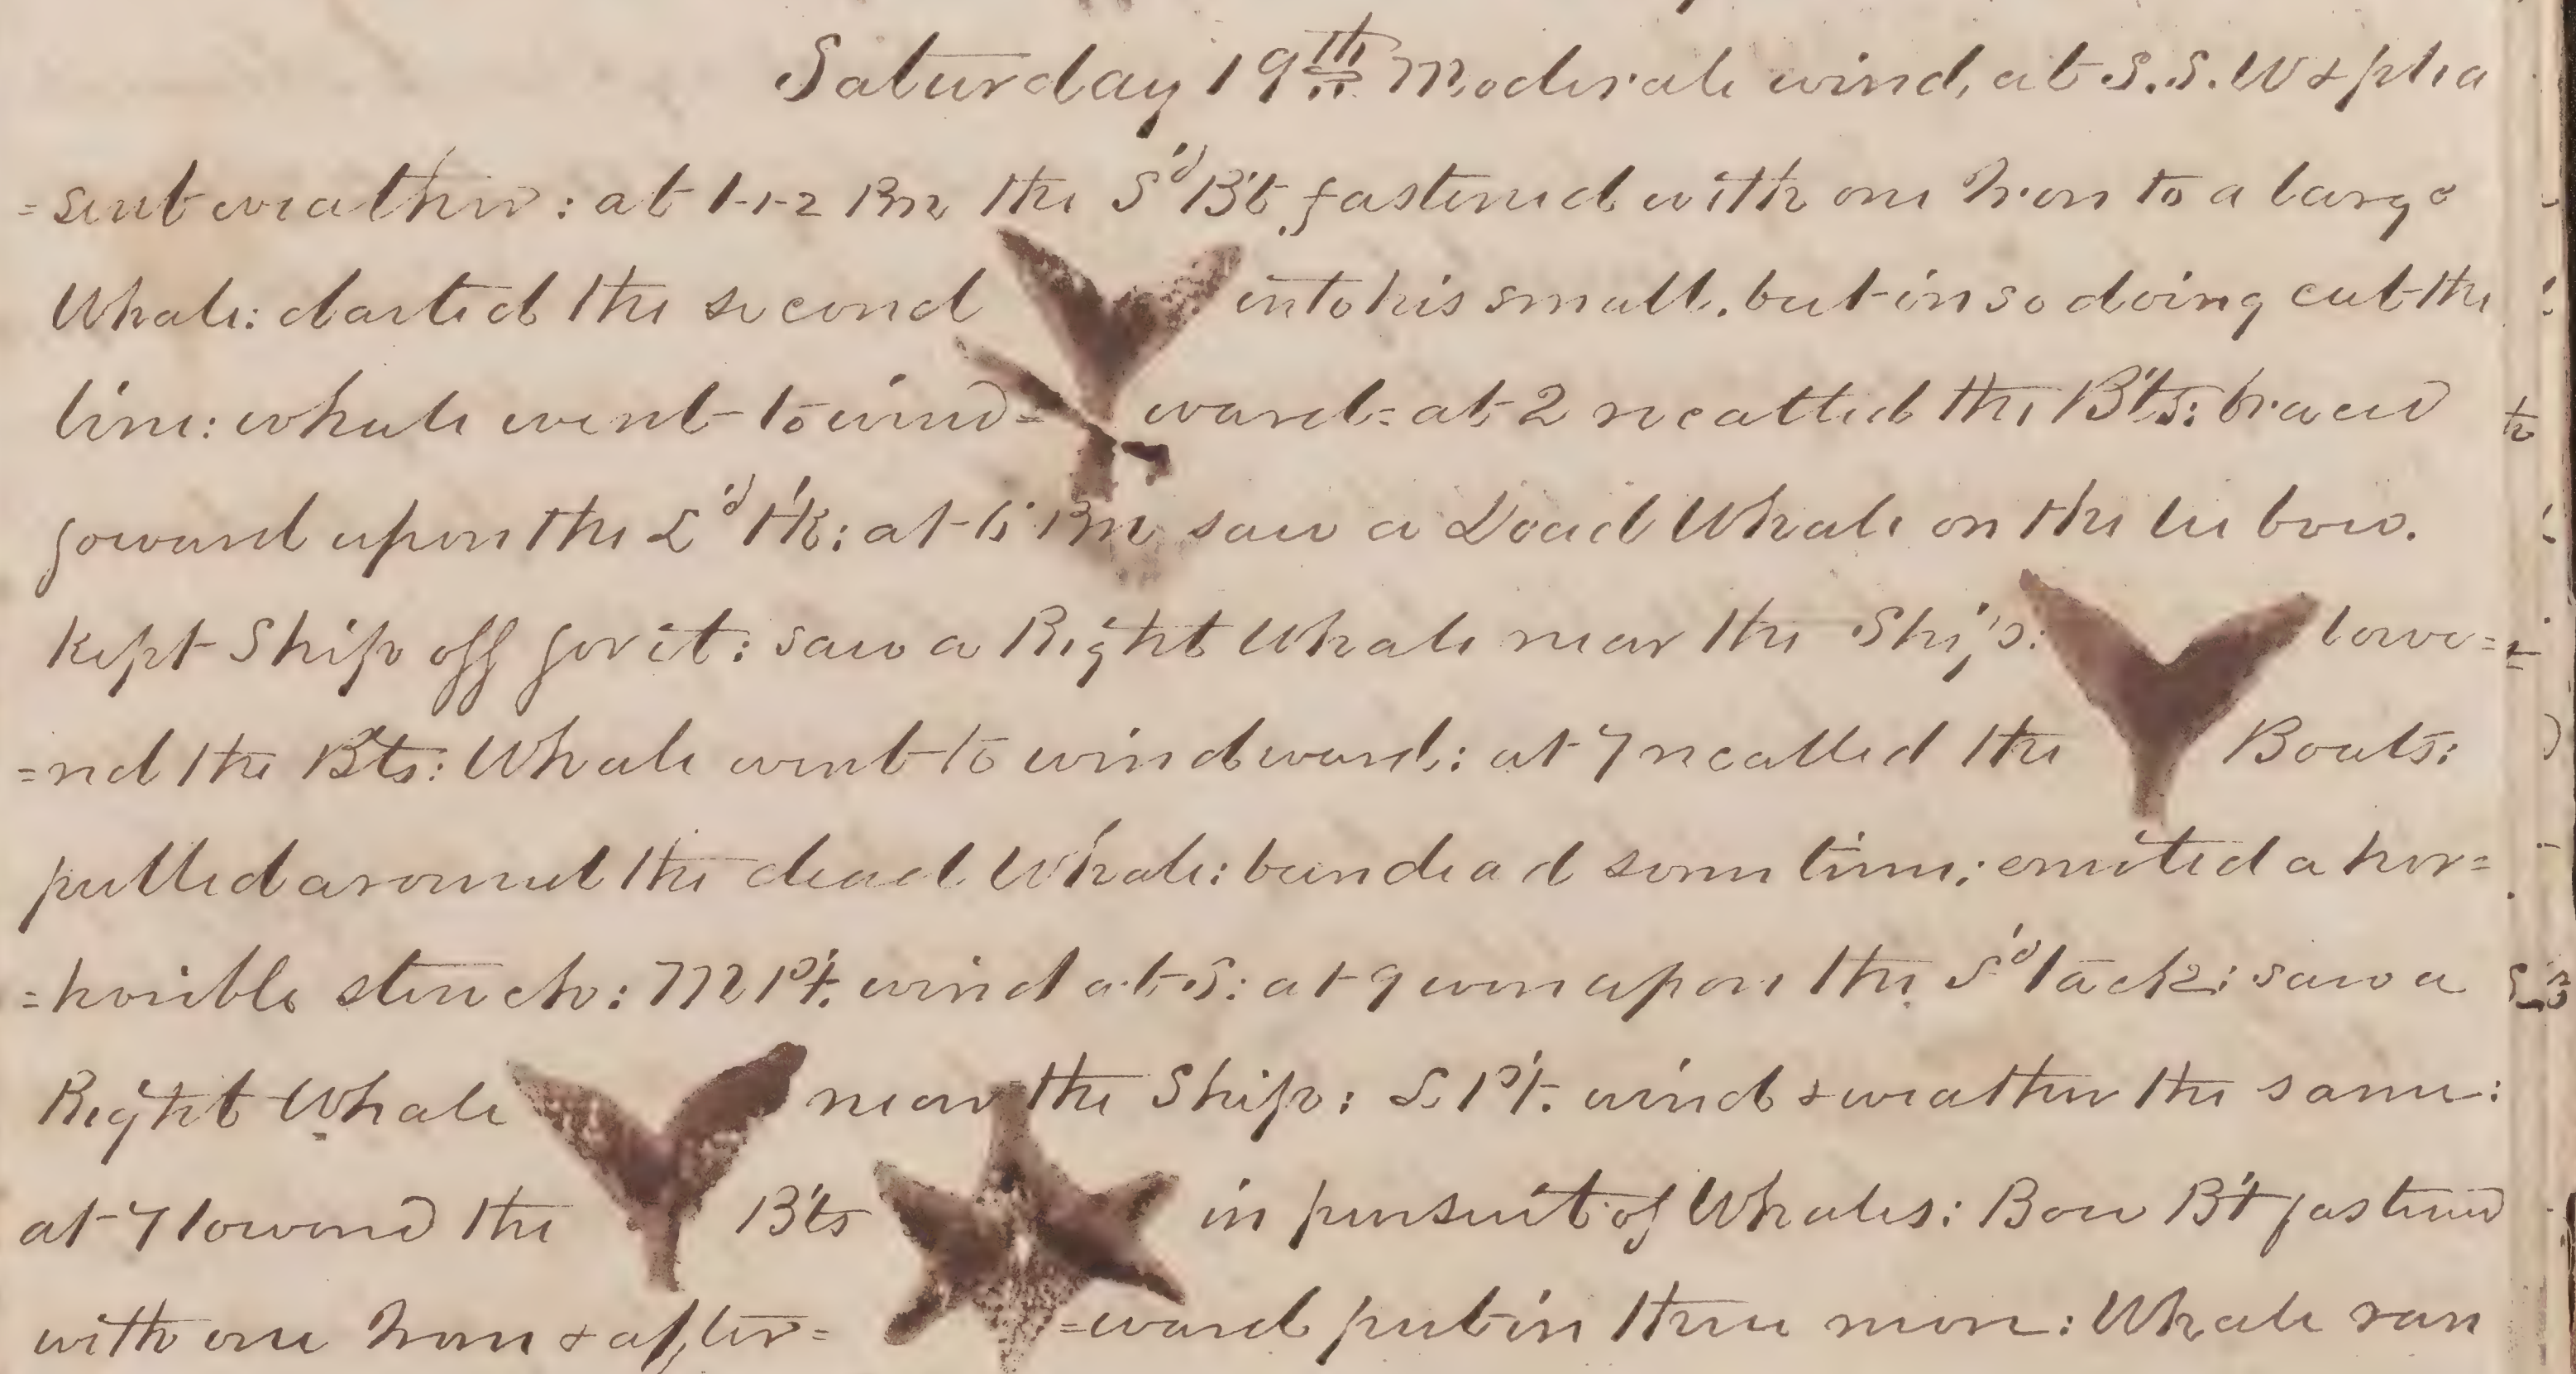 Saturday 19th Moderate wind, at S.S.W & plea
=sent weather: at 1-1-2 PM the S'd B't fastened with one Iron to a large
Whale: darted the second into his small. but in so doing cut the
line: whale went to wind= ward= at 2 recalled the B'ts: braced
forward upon the L'd t'k: at 6 PM saw a Dead Whale on the lee bow.
Kept Ship off for it: saw a Right Whale near the Ship: lowe=
=red the B'ts: Whale went to windward: at 7 recalled the Boats:
pulled around the dead Whale: been dead some time; emited a hor=
=horible stench: M P't. wind at S: at 9 wore upon the S'd tack: saw a
Right Whale near the Ship: L P't. wind & weather the same:
at 7 lowered the B'ts in pursuit of Whales: Bow B't fastened
with one Iron & after= =ward put in three more: Whale ran